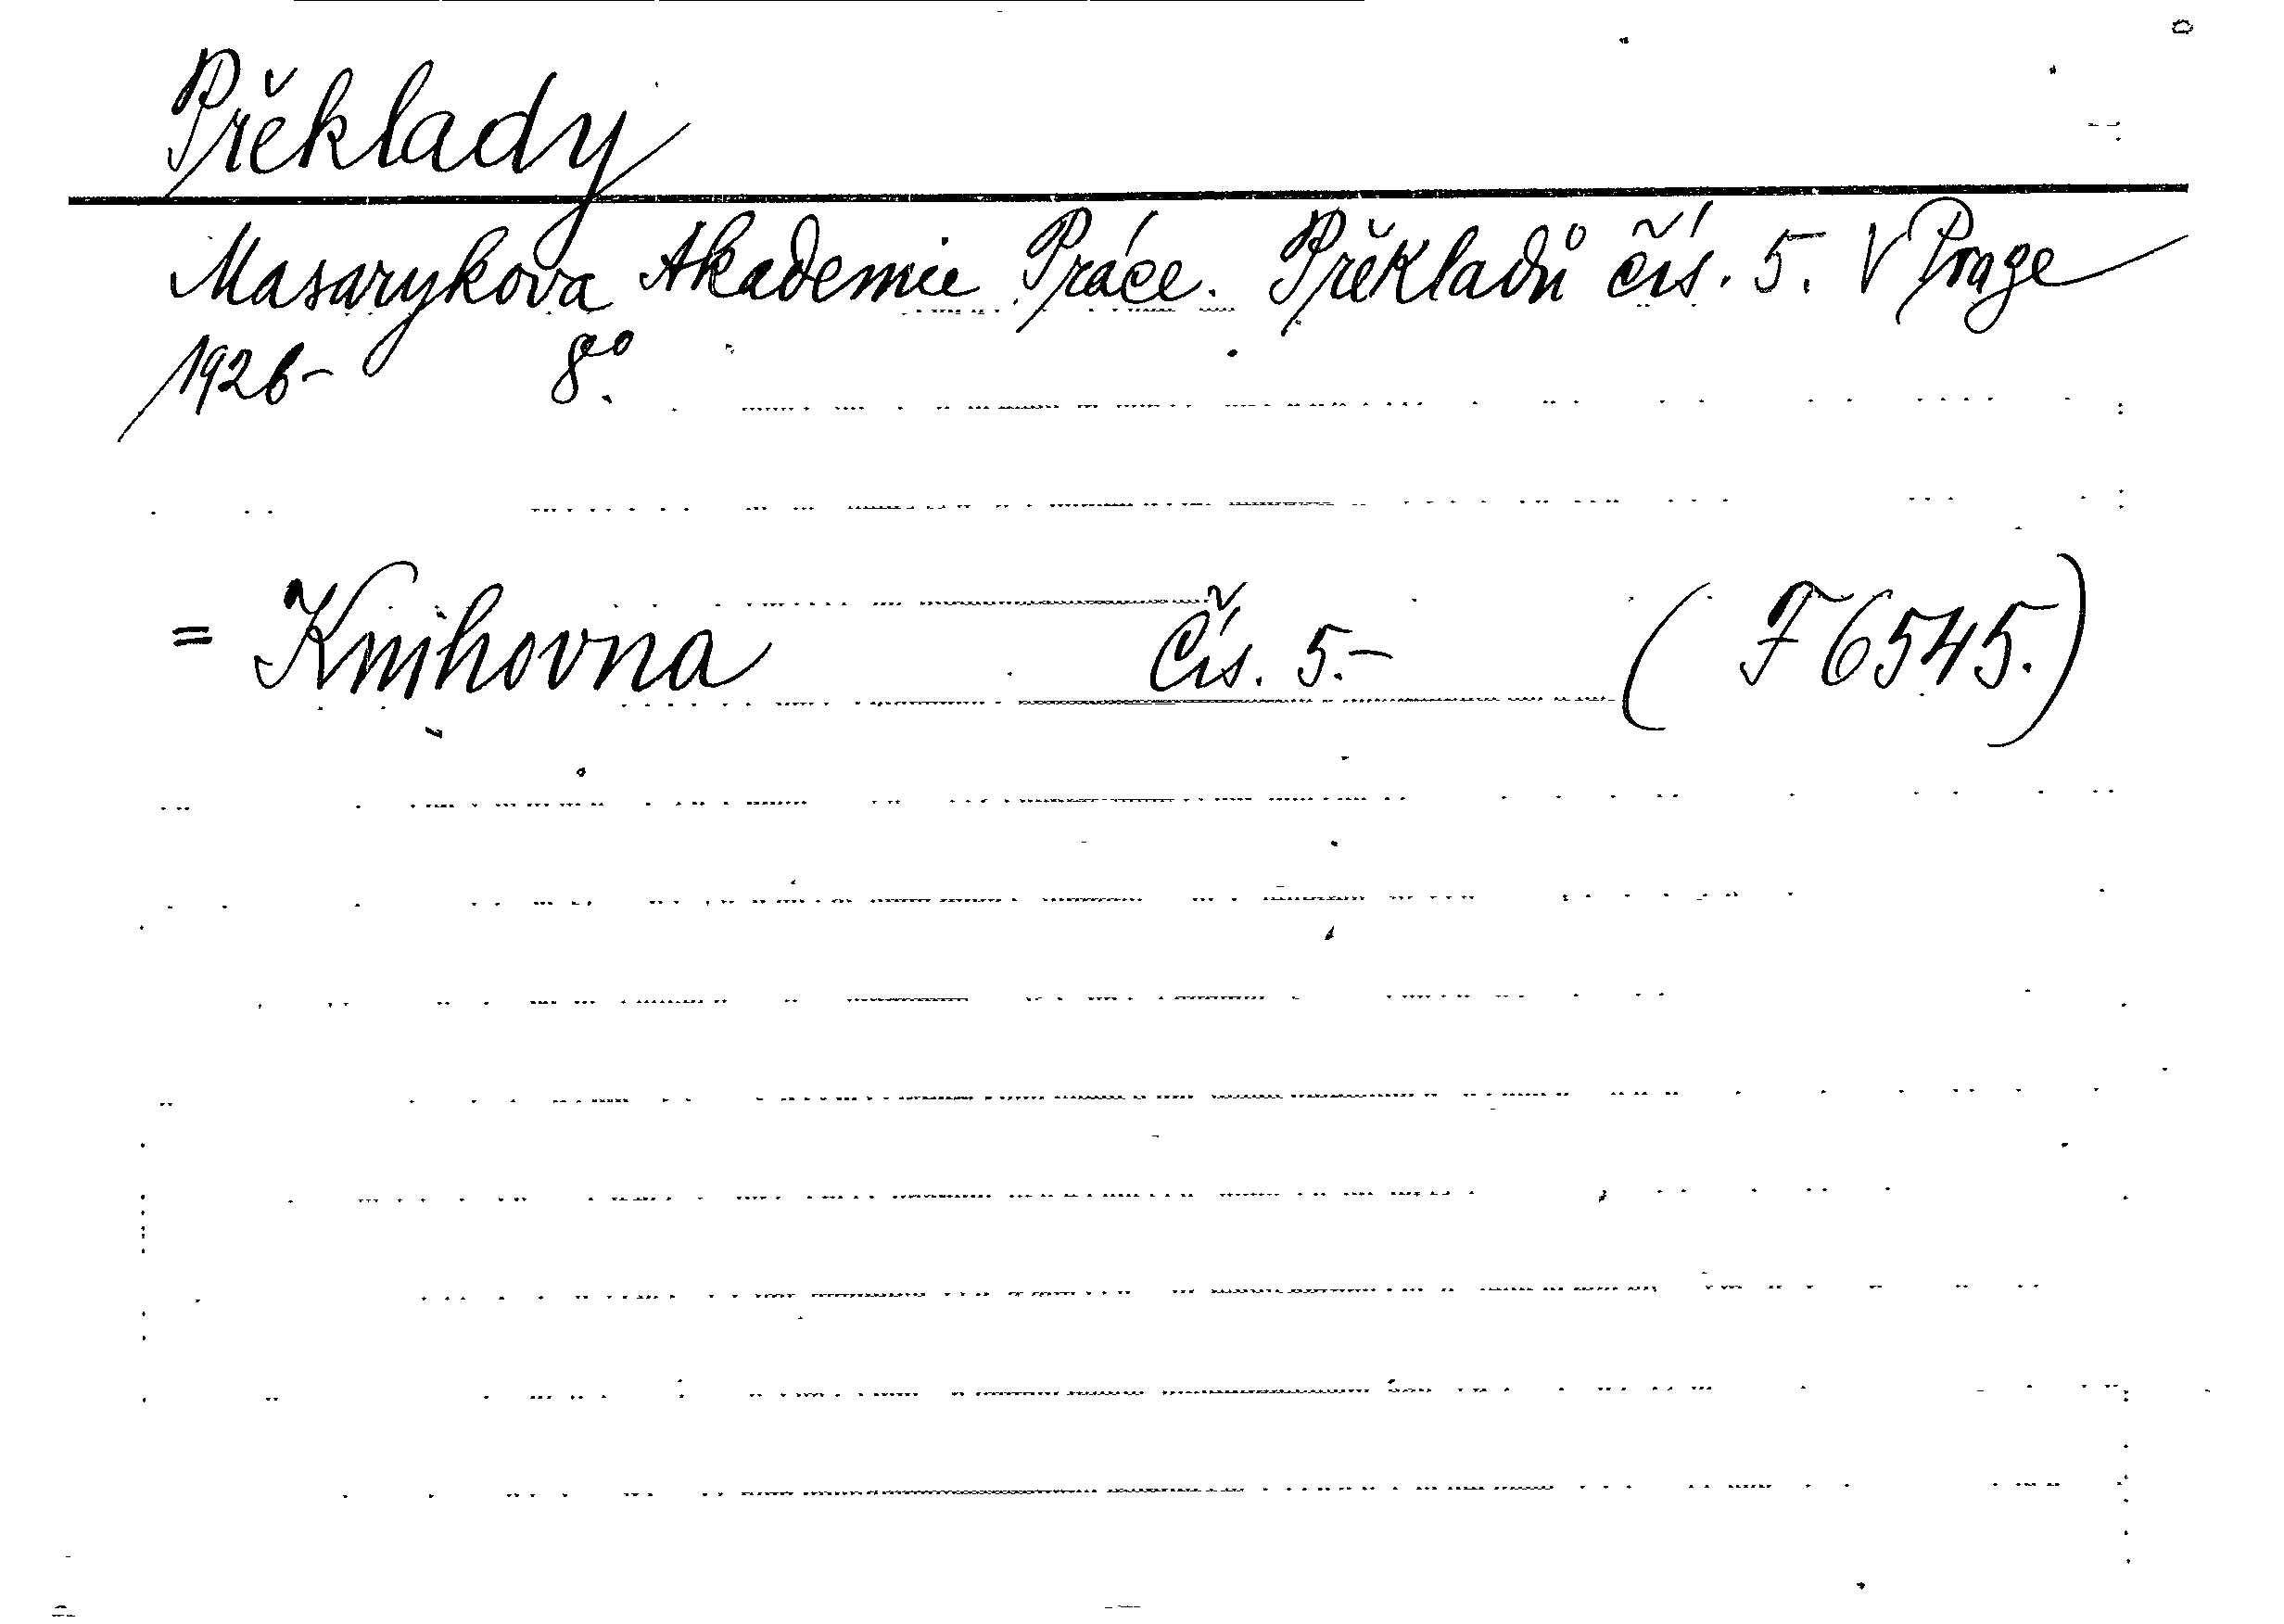 Překlady
Masarykova Akademie Práce. Překladů čís. 5. V Praze
1926- 8°.
= Knihovna Čís. 5.- ( F 6545.)